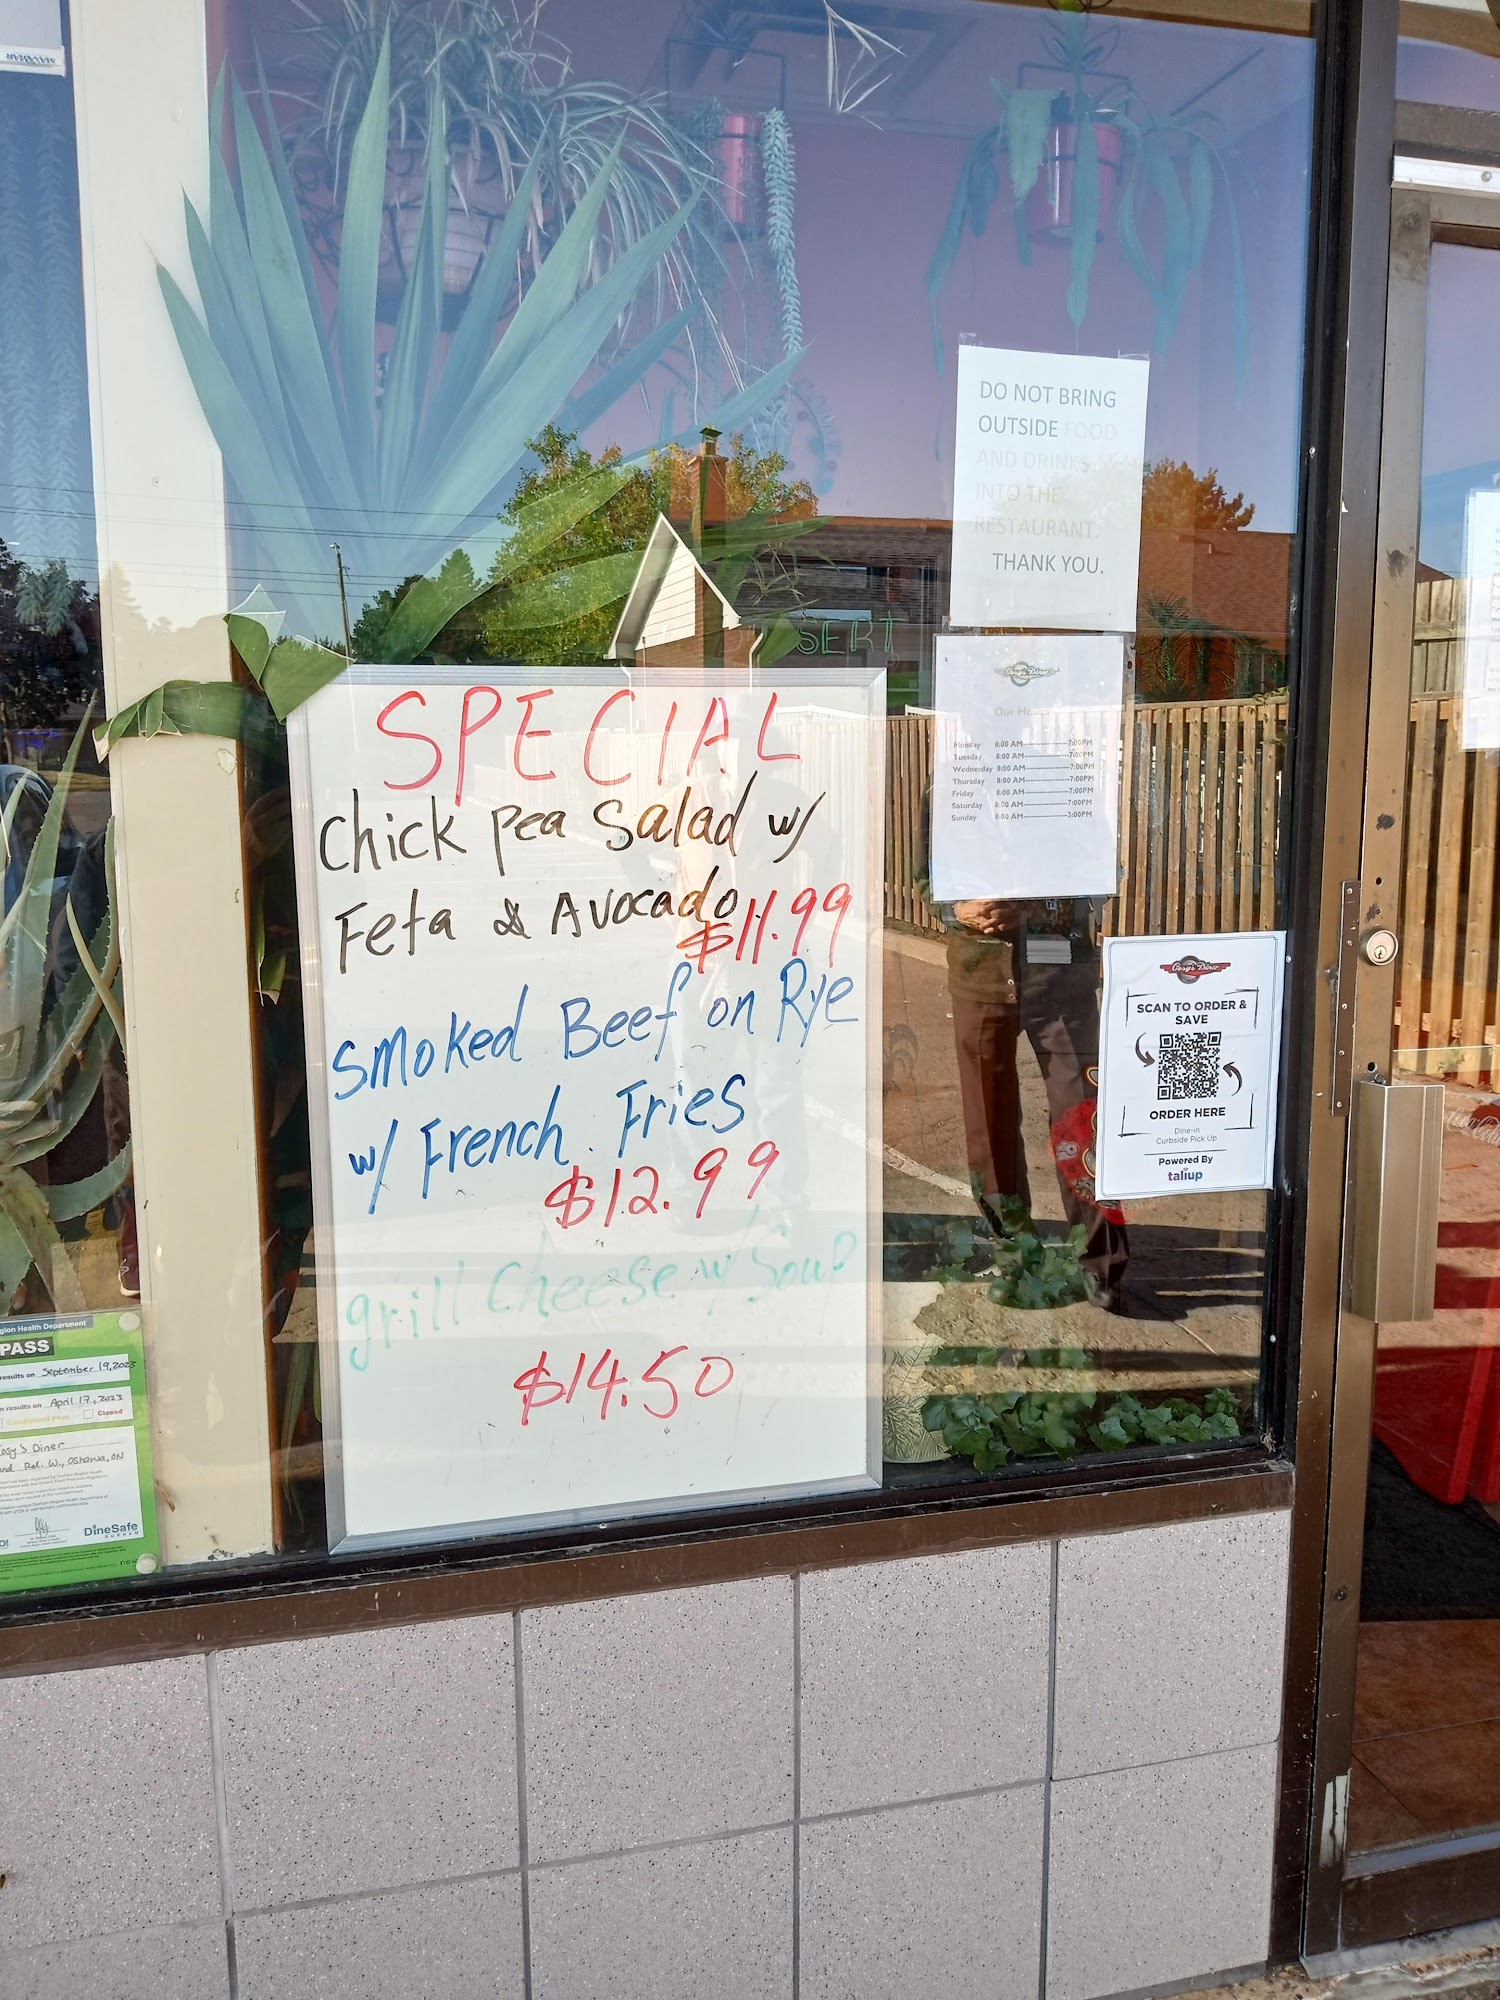 SPECIAL
Chick pea Salad w/
Feta & Avocado
$11.99
Smoked Beef on Rye
w/ French Fries
$12.99
grill Cheese w/ Soup
$14.50
DO NOT BRING
OUTSIDE FOOD
AND DRINKS
INTO THE
RESTAURANT.
THANK YOU.
SERT
Cosy's Diner
Our Hours
Monday 8:00 AM------------------7:00PM
Tuesday 8:00 AM------------------7:00PM
Wednesday 8:00 AM------------------7:00PM
Thursday 8:00 AM------------------7:00PM
Friday 8:00 AM------------------7:00PM
Saturday 8:00 AM------------------7:00PM
Sunday 8:00 AM------------------3:00PM
Cosy's Diner
SCAN TO ORDER &
SAVE
ORDER HERE
Dine-in
Curbside Pick Up
Powered By
taliup
Health Department
PASS
results on September 19, 2023
results on April 17, 2023
Conditional Pass Closed
Cosy's Diner
Rd. W., Oshawa, ON
DineSafe
DURHAM
Coca-Cola